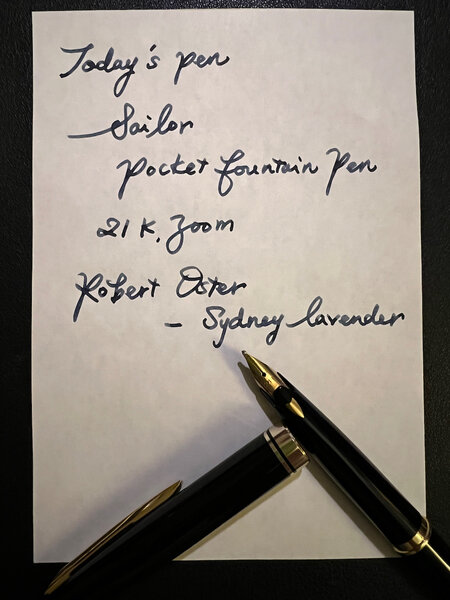 Today's pen
Sailor
Pocket fountain Pen
21 K. Zoom
Robert Oster
- Sydney lavender